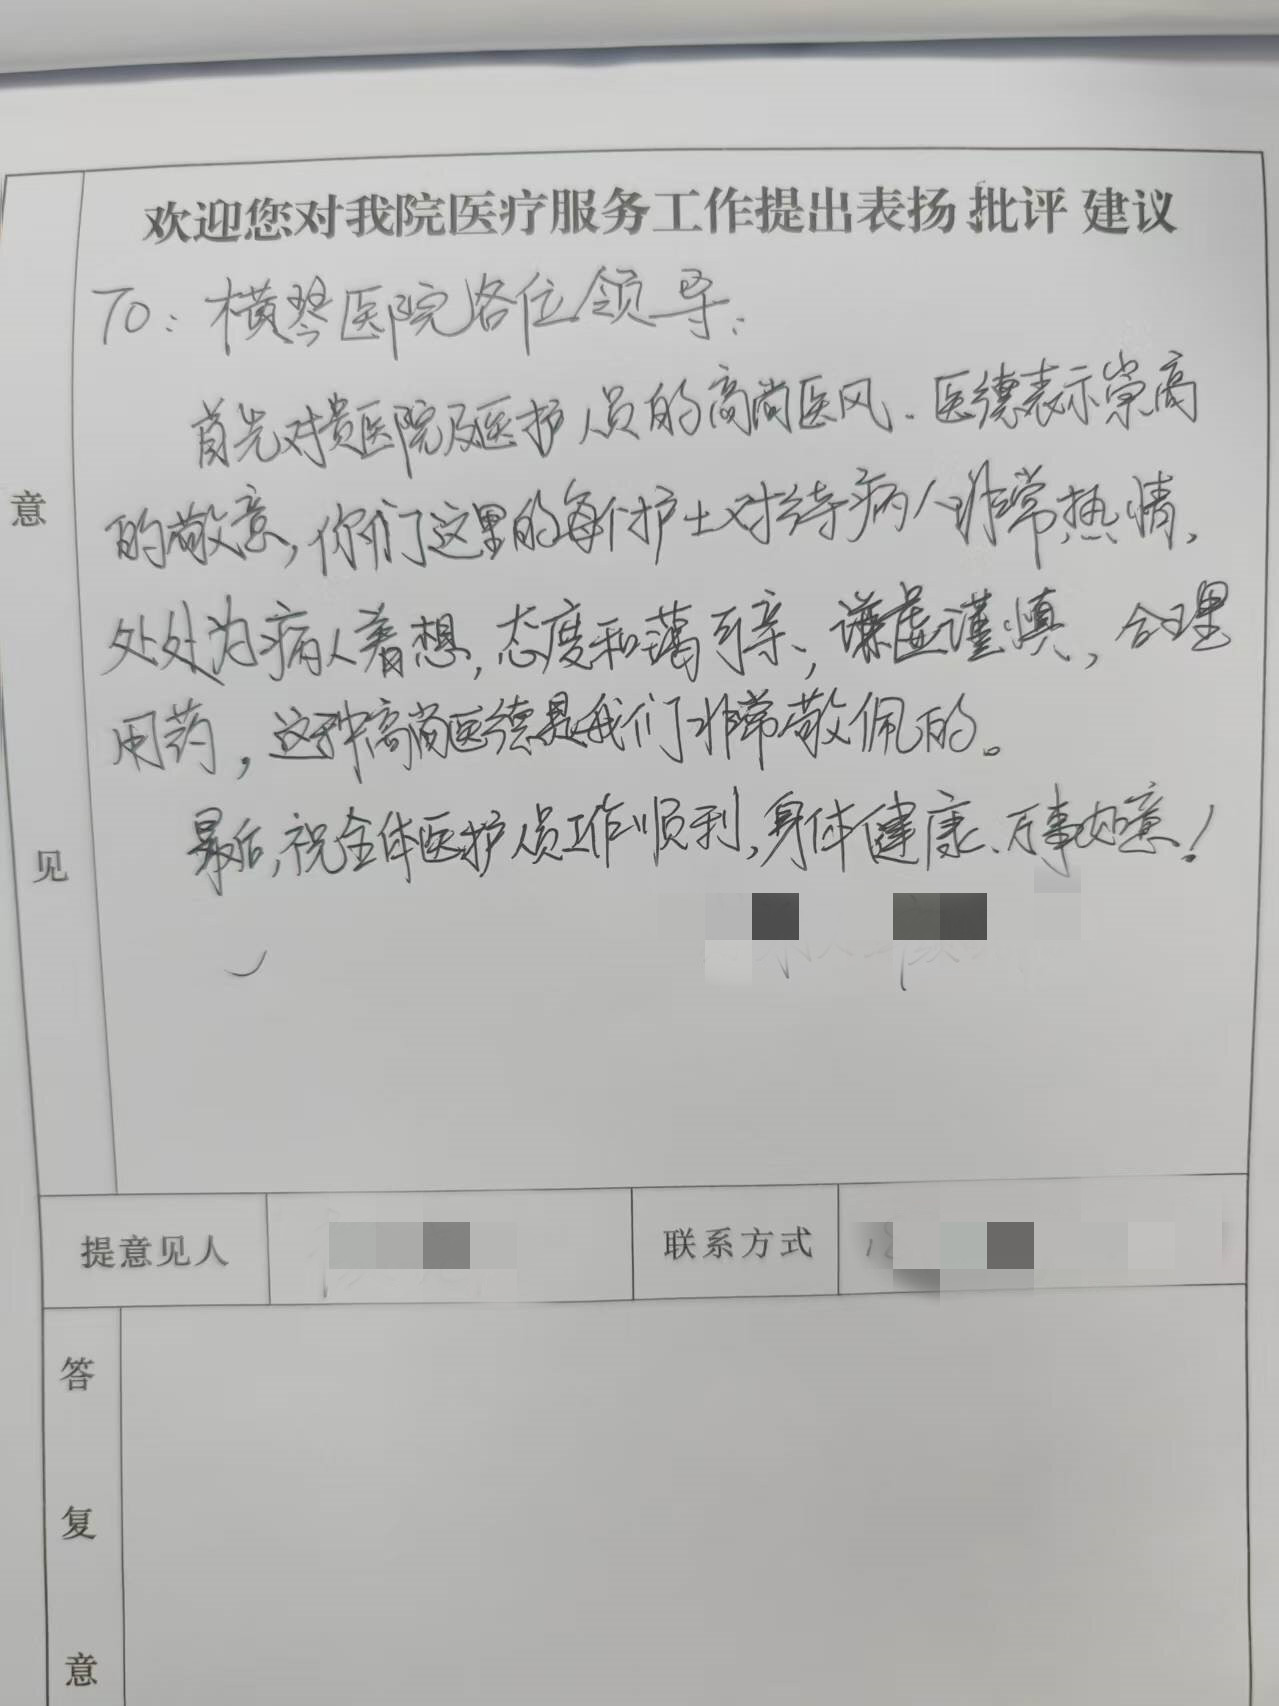 欢迎您对我院医疗服务工作提出表扬 批评 建议
TO：横琴医院各位领导：
首先对贵医院及医护人员的高尚医风、医德表示崇高
的敬意，你们这里的每个护士对待病人非常热情、
处处为病人着想，态度和蔼可亲，谦虚谨慎，合理
用药，这种高尚医德是我们非常敬佩的。
最后，祝全体医护人员工作顺利，身体健康、万事如意！
意
见
提意见人
联系方式
答
复
意